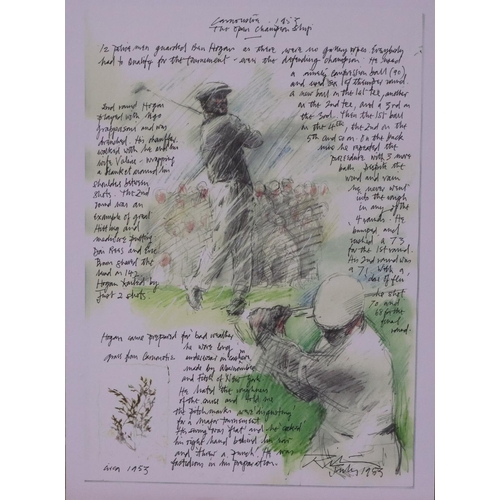 Carnoustie . 1953
The Open Championship
12 policemen guarded Ben Hogan as there were no gallery ropes. Everybody
had to qualify for the tournament - even the defending champion. He used
a compression ball (90)
and used
a new ball on the 1st tee, another
on the 2nd tee, and a 3rd on
the 3rd. Then the 1st ball
on the 4th, the 2nd on the
5th and so on. On the back
nine he repeated the
procedure with 3 more
balls despite the
wind and rain
he never went
into the rough
in any of the
4 rounds. He
a 73
for the 1st round.
His 2nd round was
a 71. With a
he shot
70 and
68 for the
final
round.
2nd round Hogan
played with Hugo
and was
drenched. His
walked with he and his
wife Valerie - wrapping
a blanket around his
shoulders between
shots. The 2nd
round was an
example of great
hitting and
mediocre putting
Dai Rees and Eric
Brown shared the
lead on 142
Hogan trailed by
just 2 shots
Hogan came prepared for bad weather
he wore long
underwear in cashmere,
made by Abercrombie
and Fitch of New York
He hated the roughness
of the course and told me
the pitchmarks were 'disgusting'
for a major tournament
His swing was flat and he
his right hand behind his
and 'threw a punch'. He was
fastidious in his preparation.
grass from Carnoustie
circa 1953
July 1983